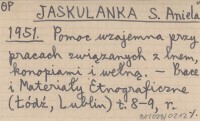 GP
JASKULANKA S. Aniela
1951. Pomoc wzajemna przy
pracach związanych z lnem,
konopiami i wełną. – Prace
i Materiały Etnograficzne
(Łódź, Lublin) t. 8-9, r.